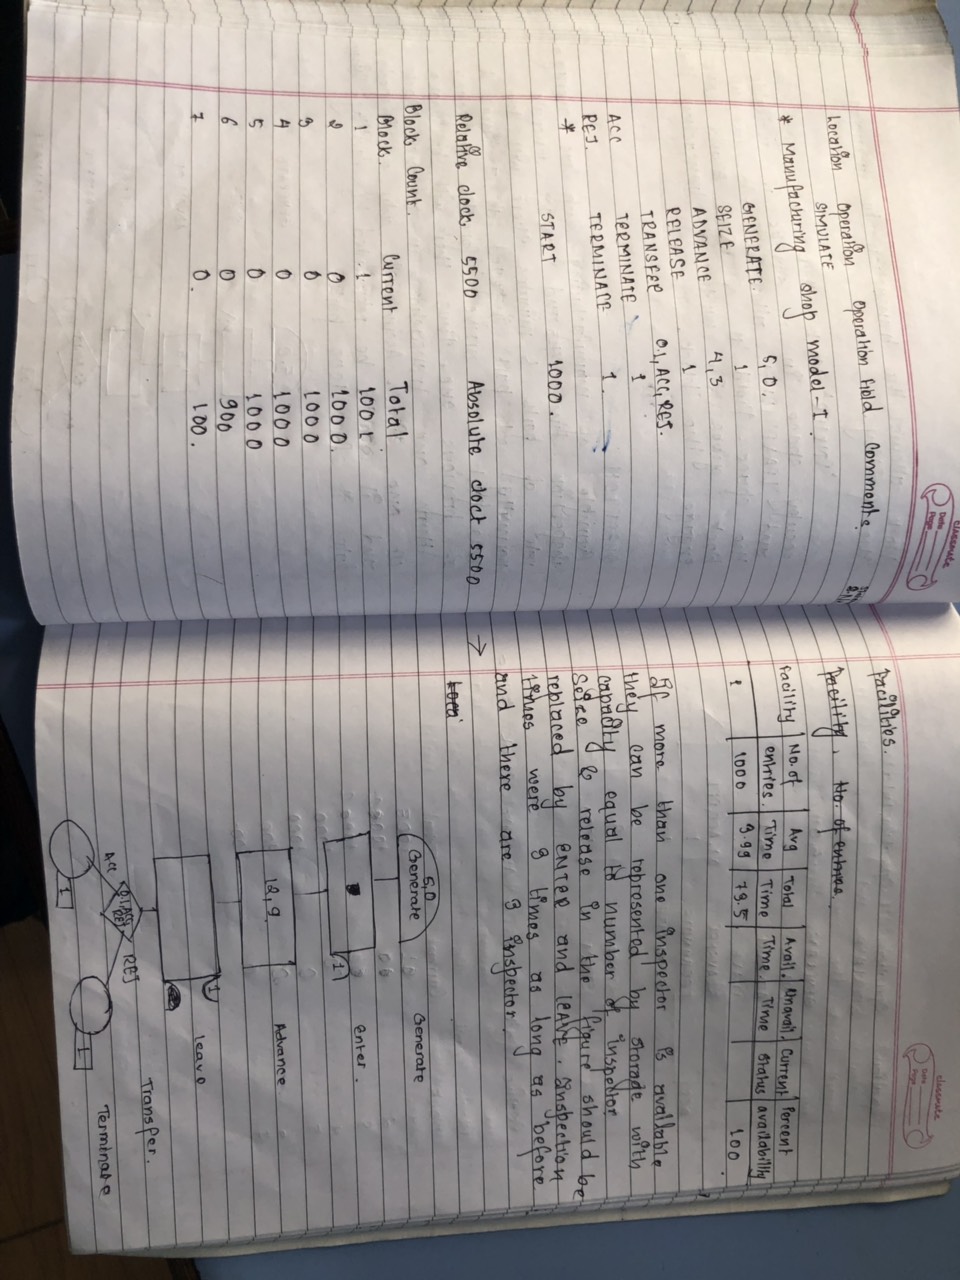 classmate
Date
Page
Location Operation Operation field Comments.
SIMULATE
* Manufacturing shop model-I.
GENERATE. 5,0.
SEIZE 1
ADVANCE 4,3
RELEASE 1
TRANSFER 0.1, ACC, REJ.
ACC TERMINATE 1
REJ. TERMINATE 1
*
START 1000.
Relative clock, 5500 Absolute clock 5500
Block Count.
Block. Current Total
1 1 1001.
2 0 1000.
3 0 1000
4 0 1000
5 0 1000
6 0 900
7 0. 100.
classmate
Date
Page
Facilities.
Facility, No. of entries,
Facility No. of entries. Avg Time Total Time Avail. Time. Unavail. Time Current status Percent availability
1 1000 3.99 79.5 100.
If more than one inspector is available
they can be represented by storage with
capacity equal to number of inspector.
Seize & release in the figure should be
replaced by ENTER and LEAVE. Inspection
times were 3 times as long as before
→ and there are 3 inspector.
5,0
Generate
Generate
1
Enter.
12,9
Advance
1
Leave
0.1, ACC, REJ
Acc
REJ
Transfer.
1
1
Terminate